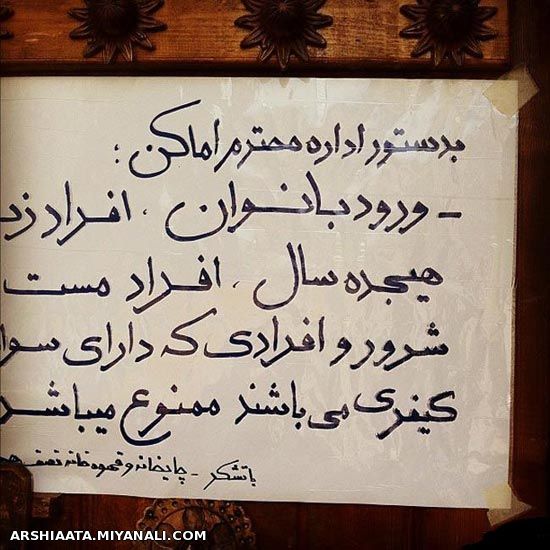 بدستور اداره محترم اماکن :
- ورود بانوان ، افراد
هیجده سال ، افراد مست
شرور و افرادی که دارای
کیفری می باشند ممنوع میباشد
با تشکر - چایخانه و قهوه خانه
ARSHIAATA.MIYANALI.COM